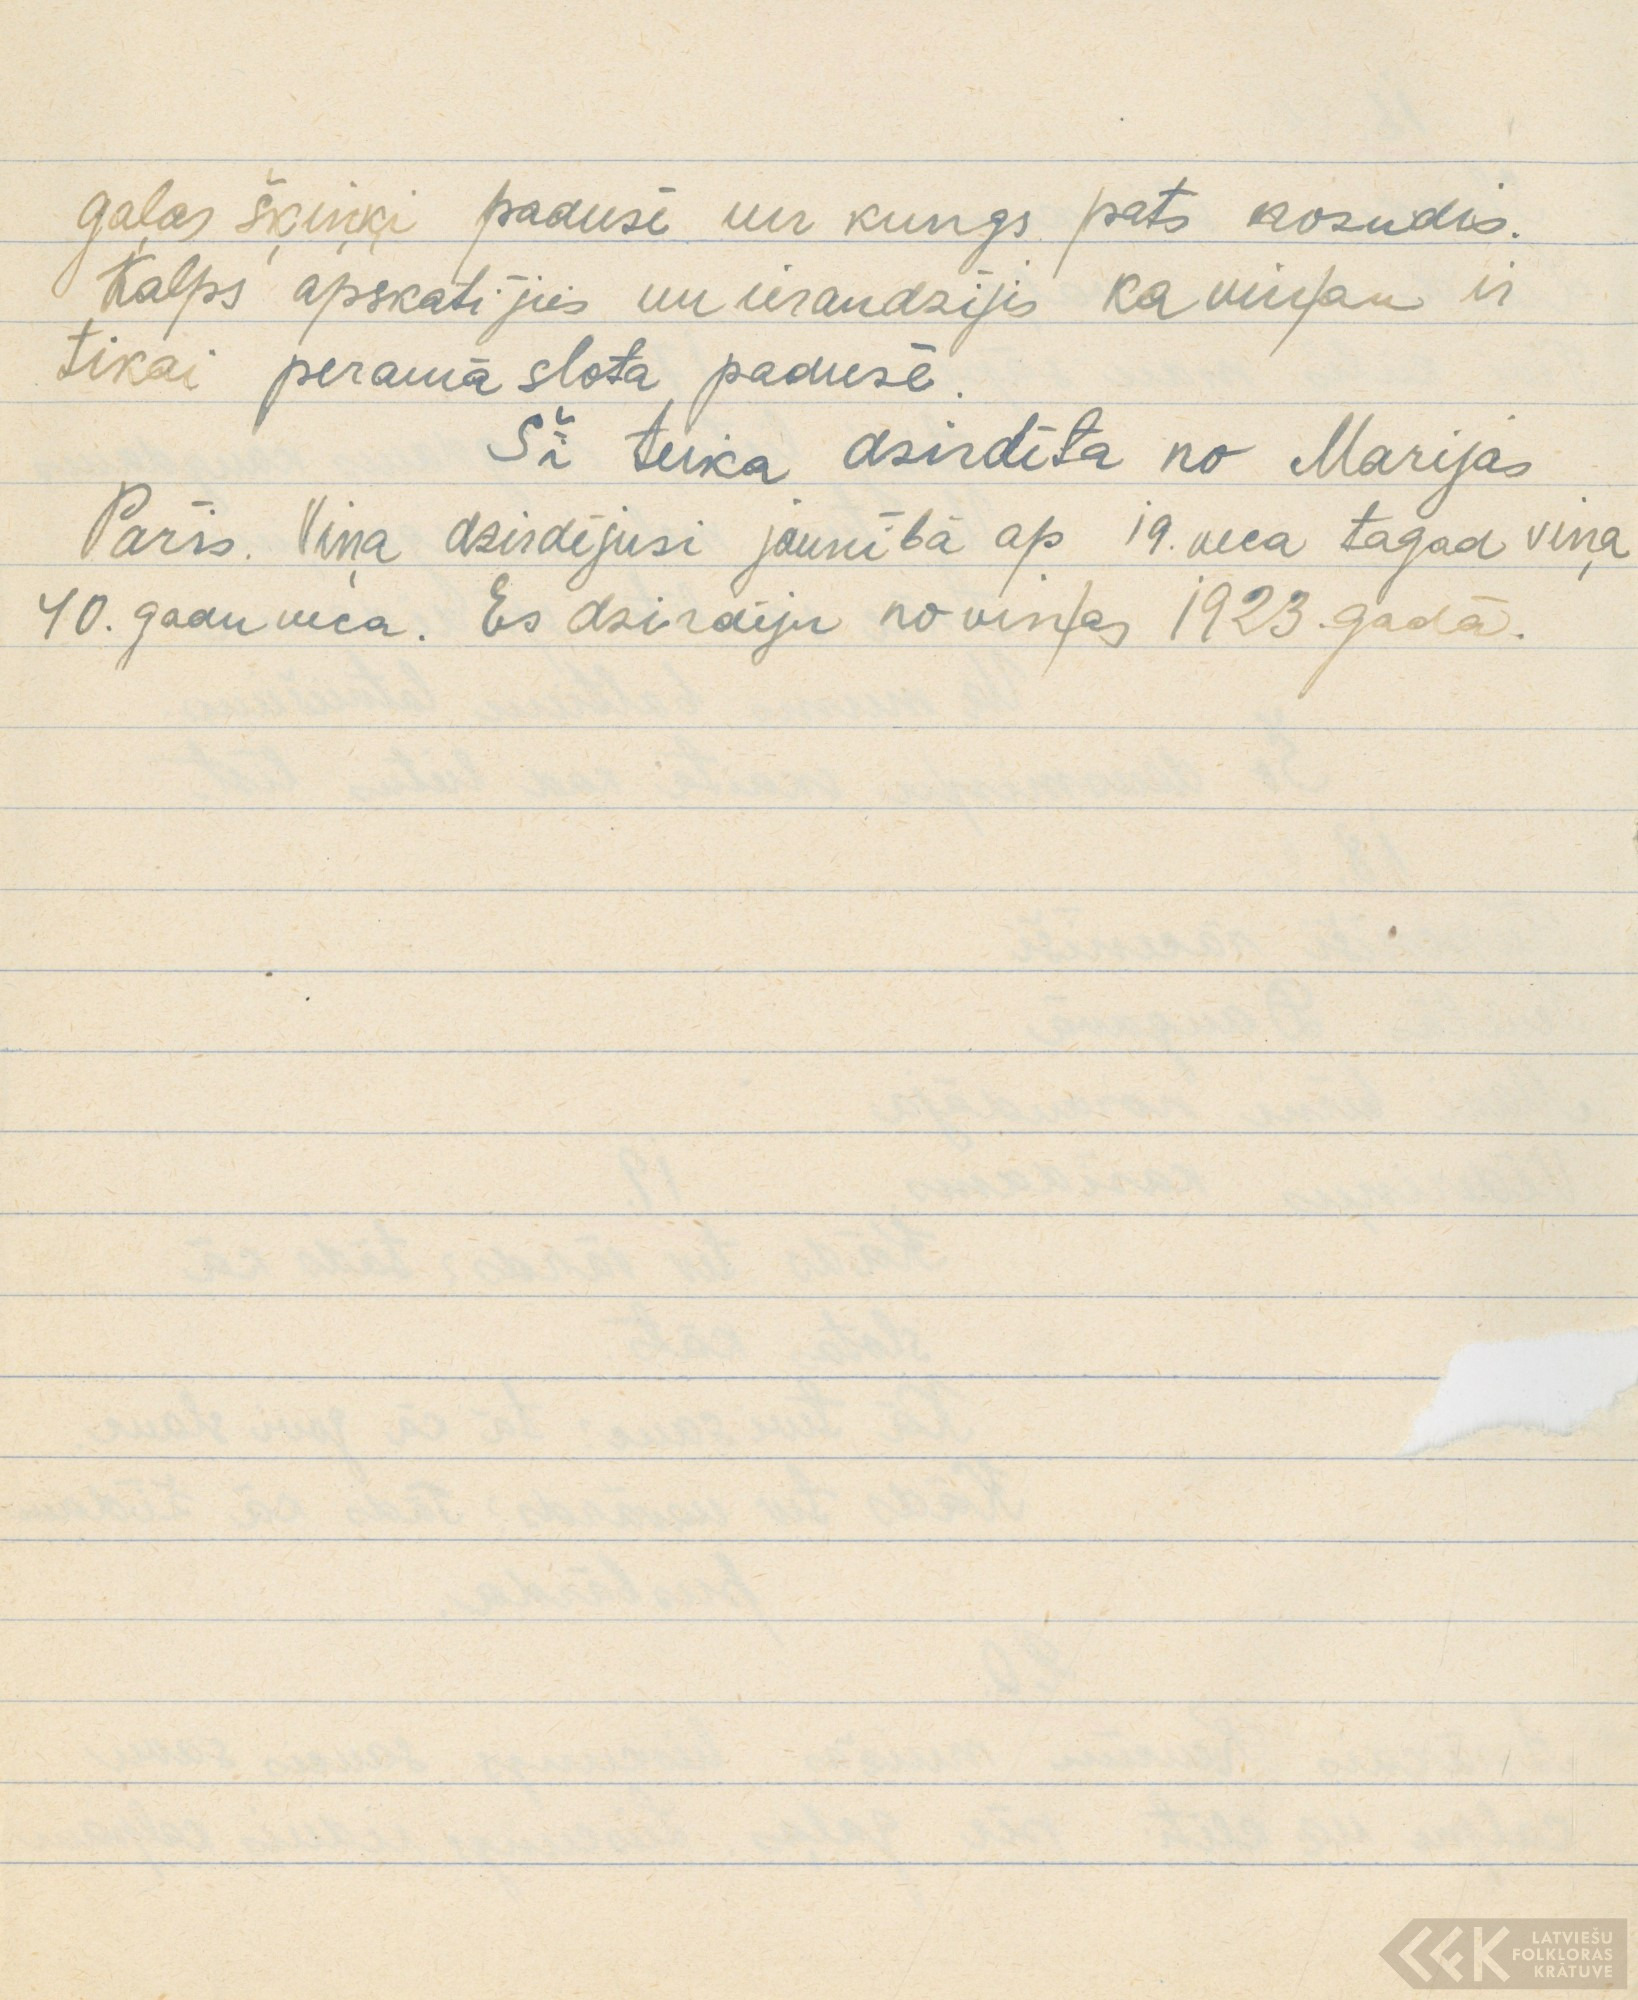 gaļas šķiņķi padusē un kungs pats pozudis.
Kalps apskatijies un ieraudzijis ka viņam ir
tikai peramā slota padusē.
Šī teika dzirdēta no Marijas
Paris. Viņa dzirdējusi jaunībā ap 19. veca tagad viņa
40. gadu veca. Es dzirdēju no viņas 1923. gadā.
LATVIEŠU
FOLKLORAS
KRĀTUVE